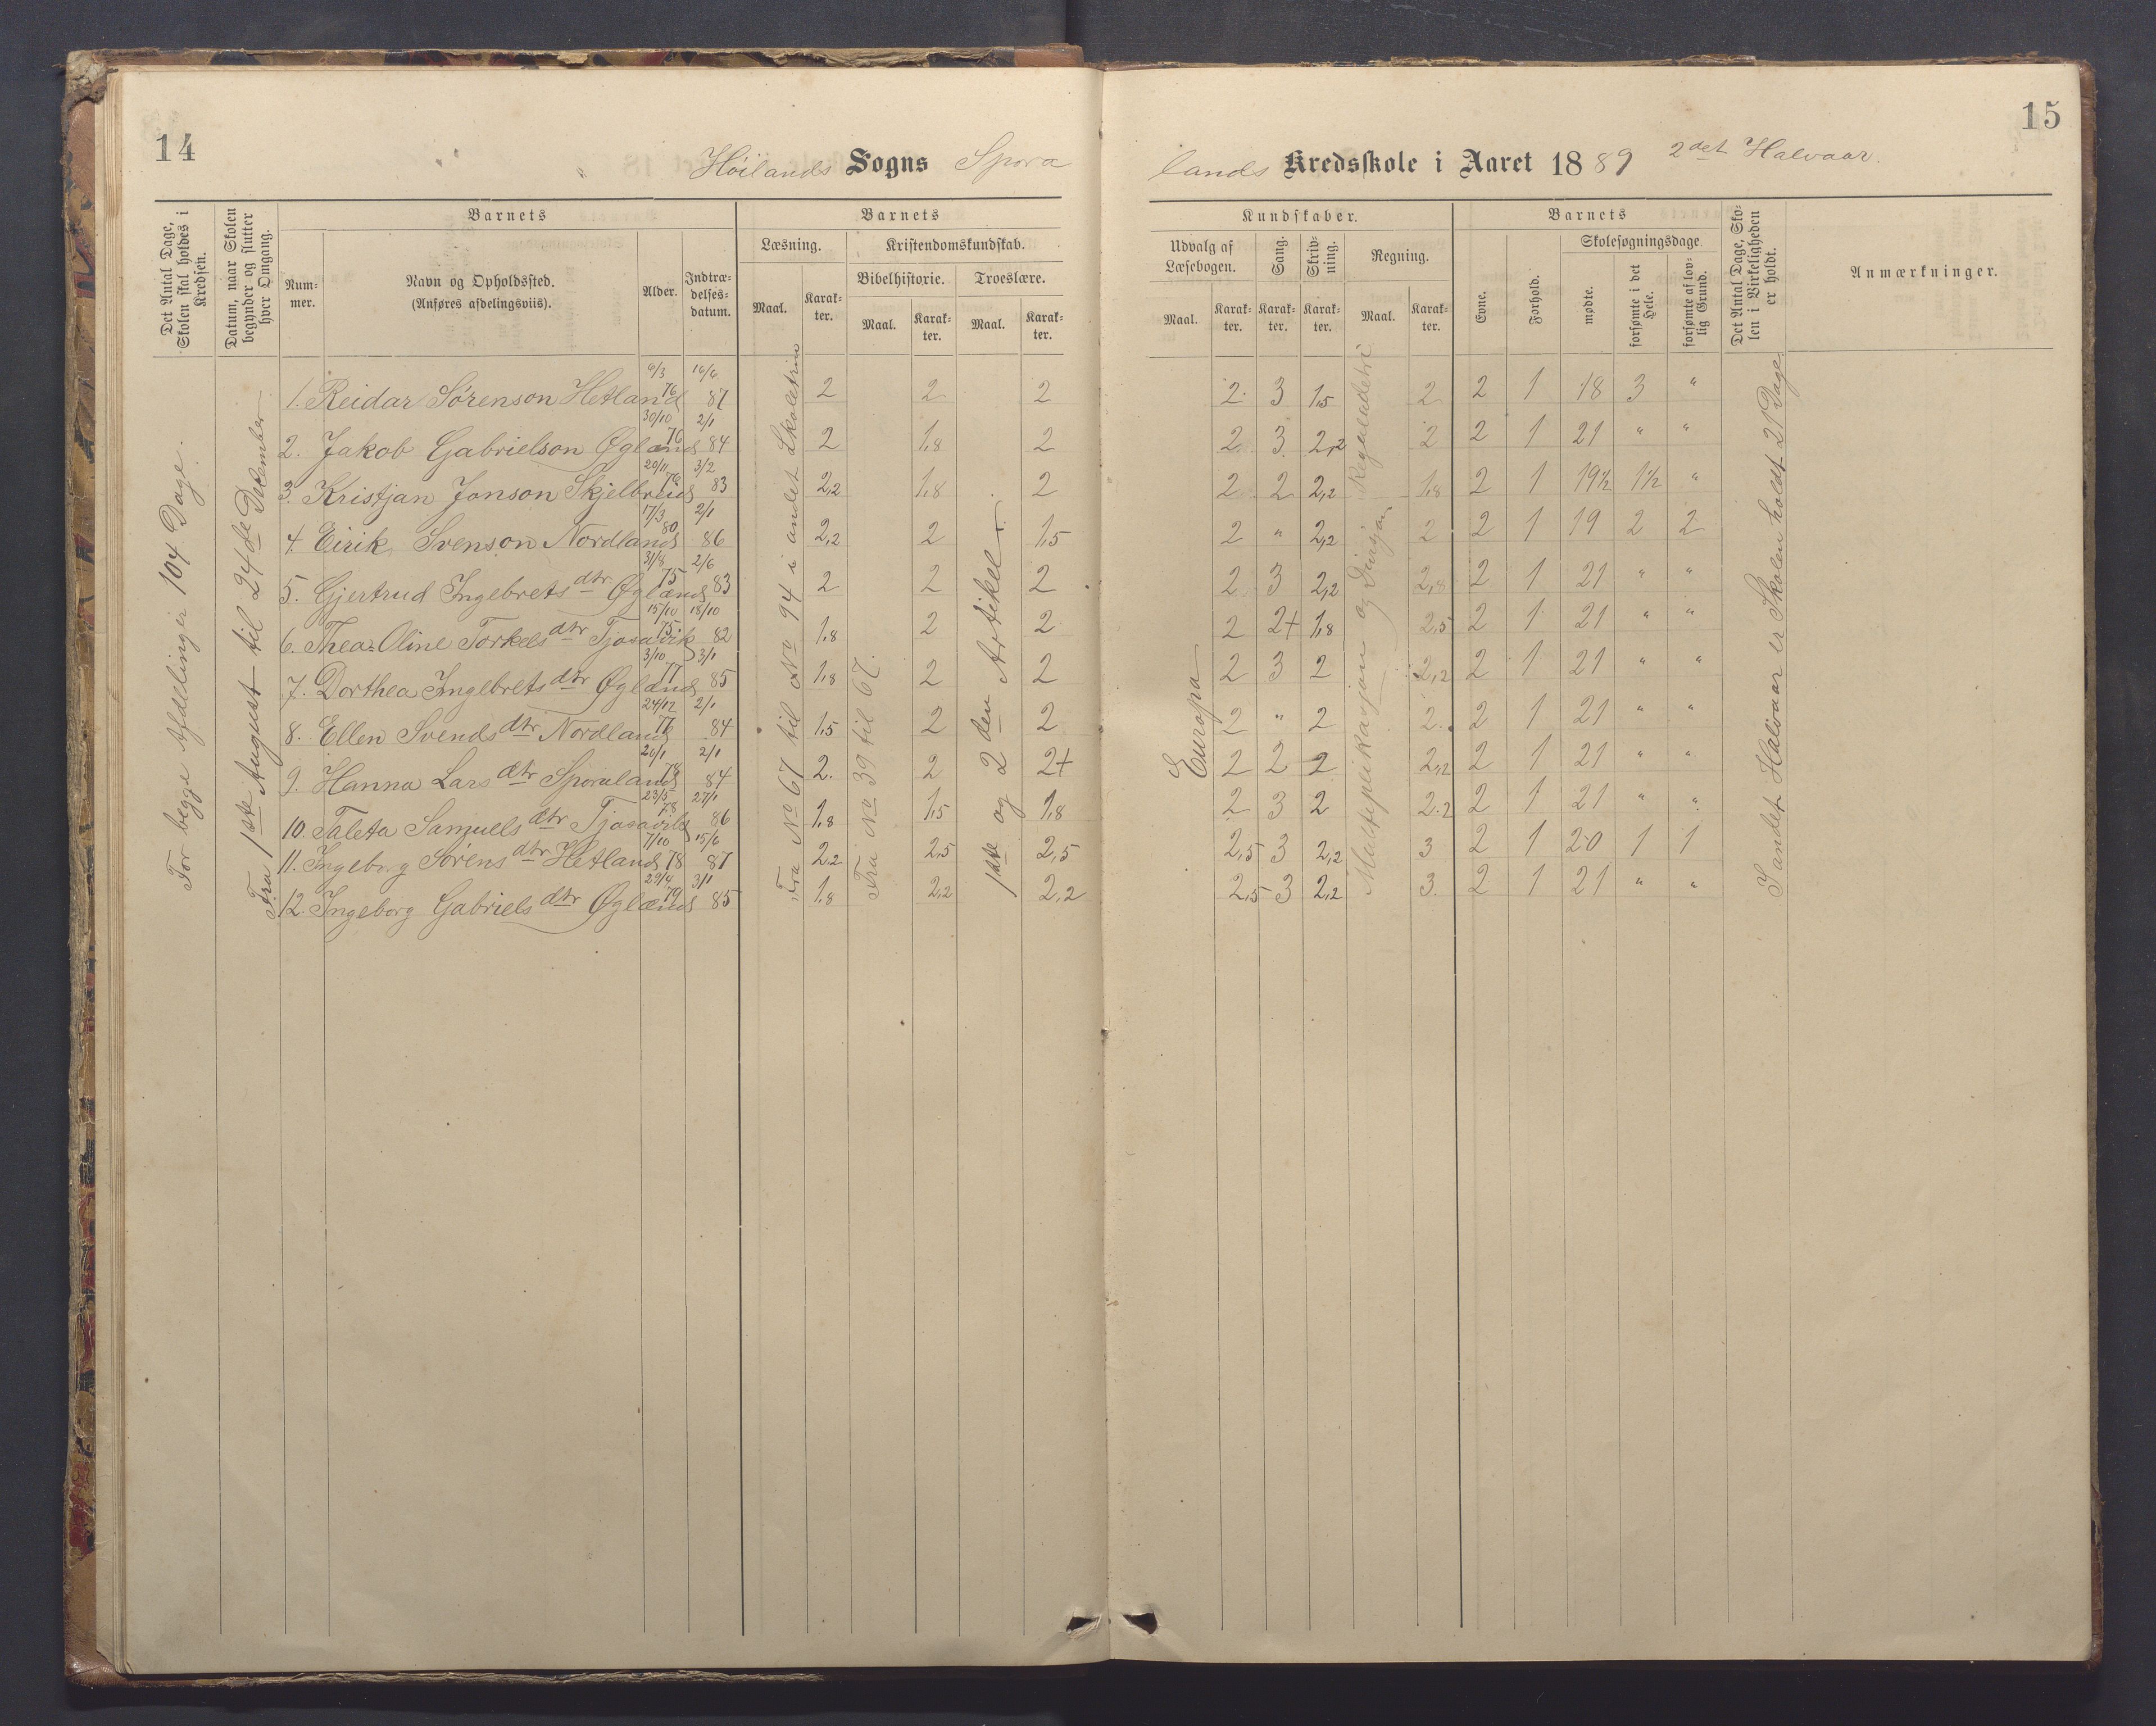 14
Höilands Sogns Spora
Det Antal Dage, Skolen skal holdes i Kredsen.
Datum, naar Skolen begynder og slutter hver Omgang.
Barnets
Nummer.
Navn og Opholdssted.
(Anføres afdelingsviis).
Alder.
Indtrædelsesdatum.
Barnets
Læsning.
Kristendomskundskab.
Bibelhistorie.
Troeslære.
Maal.
Karakter.
Maal.
Karakter.
Maal.
Karakter.
For begge Afdelinger 104 Dage.
Fra 1ste August til 24de December
1. Reidar Sørenson Hetland 6/3 76 16/6 87 2 2 2
2. Jakob Gabrielson Øglænd 30/10 76 2/1 84 2 1,8 2
3. Kristjan Jonson Skjelbreid 20/11 76 3/2 83 2,2 1,8 2
4. Eirik Svenson Nordland 17/3 80 2/1 86 2,2 2 1,5
5. Gjertrud Ingebrets dtr Øglænd 31/8 75 2/6 83 2 2 2
6. Thea Oline Torkels dtr Tjosavik 15/10 75 18/10 82 1,8 2 2
7. Dorthea Ingebrets dtr Øglænd 3/10 77 3/1 85 1,8 2 2
8. Ellen Svends dtr Nordland 24/12 77 2/1 84 1,5 2 2
9. Hanna Lars dtr Sporaland 26/1 78 2/1 84 2. 2 2+
10. Taleta Samuels dtr Tjosavik 23/5 78 27/1 86 1,8 1,5 1,8
11. Ingeborg Sørens dtr Hetland 7/10 78 15/6 87 2,2 2,5 2,5
12. Ingeborg Gabriels dtr Øglænd 29/4 79 3/1 85 1,8 2,2 2,2
Fra No 67 til No 94 i andet Skoletrin
Fra No 39 til 67.
1ste og 2den Artikel
15
lands Kredsskole i Aaret 1889 2det Halvaar.
Kundskaber.
Udvalg af Læsebogen.
Sang.
Skrivning.
Regning.
Maal.
Karakter.
Karakter.
Karakter.
Maal.
Karakter.
Barnets
Evne.
Forhold.
Skolesøgningsdage.
mødte.
forsømte i det Hele.
forsømte af lovlig Grund.
Det Antal Dage, Skolen i Virkeligheden er holdt.
Anmærkninger.
2 3 1,5 2 2 1 18 3 "
2 3 2,2 2 2 1 21 " "
2 2 2,2 1,8 2 1 19½ 1½ "
2 " 2,2 2 2 1 19 2 2
2 3 2,2 2,8 2 1 21 " "
2 2+ 1,8 2,5 2 1 21 " "
2 3 2 2,2 2 1 21 " "
2 " 2 2. 2 1 21 " "
2 2 2 2,2 2 1 21 " "
2 3 2 2,2 2 1 21 " "
2,5 3 2,2 3 2 1 20 1 1
2,5 3 2,2 3. 2 1 21 " "
Europa
Multiplikasjon og Divisjon
I andet Halvaar er Skolen holdt 21 Dage.